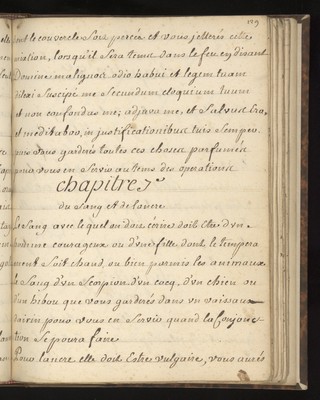 149
dont le couvercle sera percée et vous jetterés cette
oration, lorsqu'il sera temst dans le feu en disant
Domine malignos odio habui et legem tuam
dilexi Suscipe me secundum eloquium tuum
et non confondas me; adjuva me, et Salvus Ero,
et meditabor, in justificationibus tuis Semper.
puis vous garderés toutes ces choses parfumés
pour vous en servir au tems des operations
chapitre 7e
du Sang et de l'ancre
Le Sang avec le quel on doit écrire doit être d'un
homme courageux ou d'une fille dont le tempera
ment soit chaud, ou bien parmis les animaux
le Sang d'un Scorpion d'un cocq, d'un chien ou
d'un hibou que vous garderés dans un vaisseau
d'airain pour vous en servir quand la Conjonc
tion se poura faire
Pour lancre elle doit Estre vulgaire, vous aurés